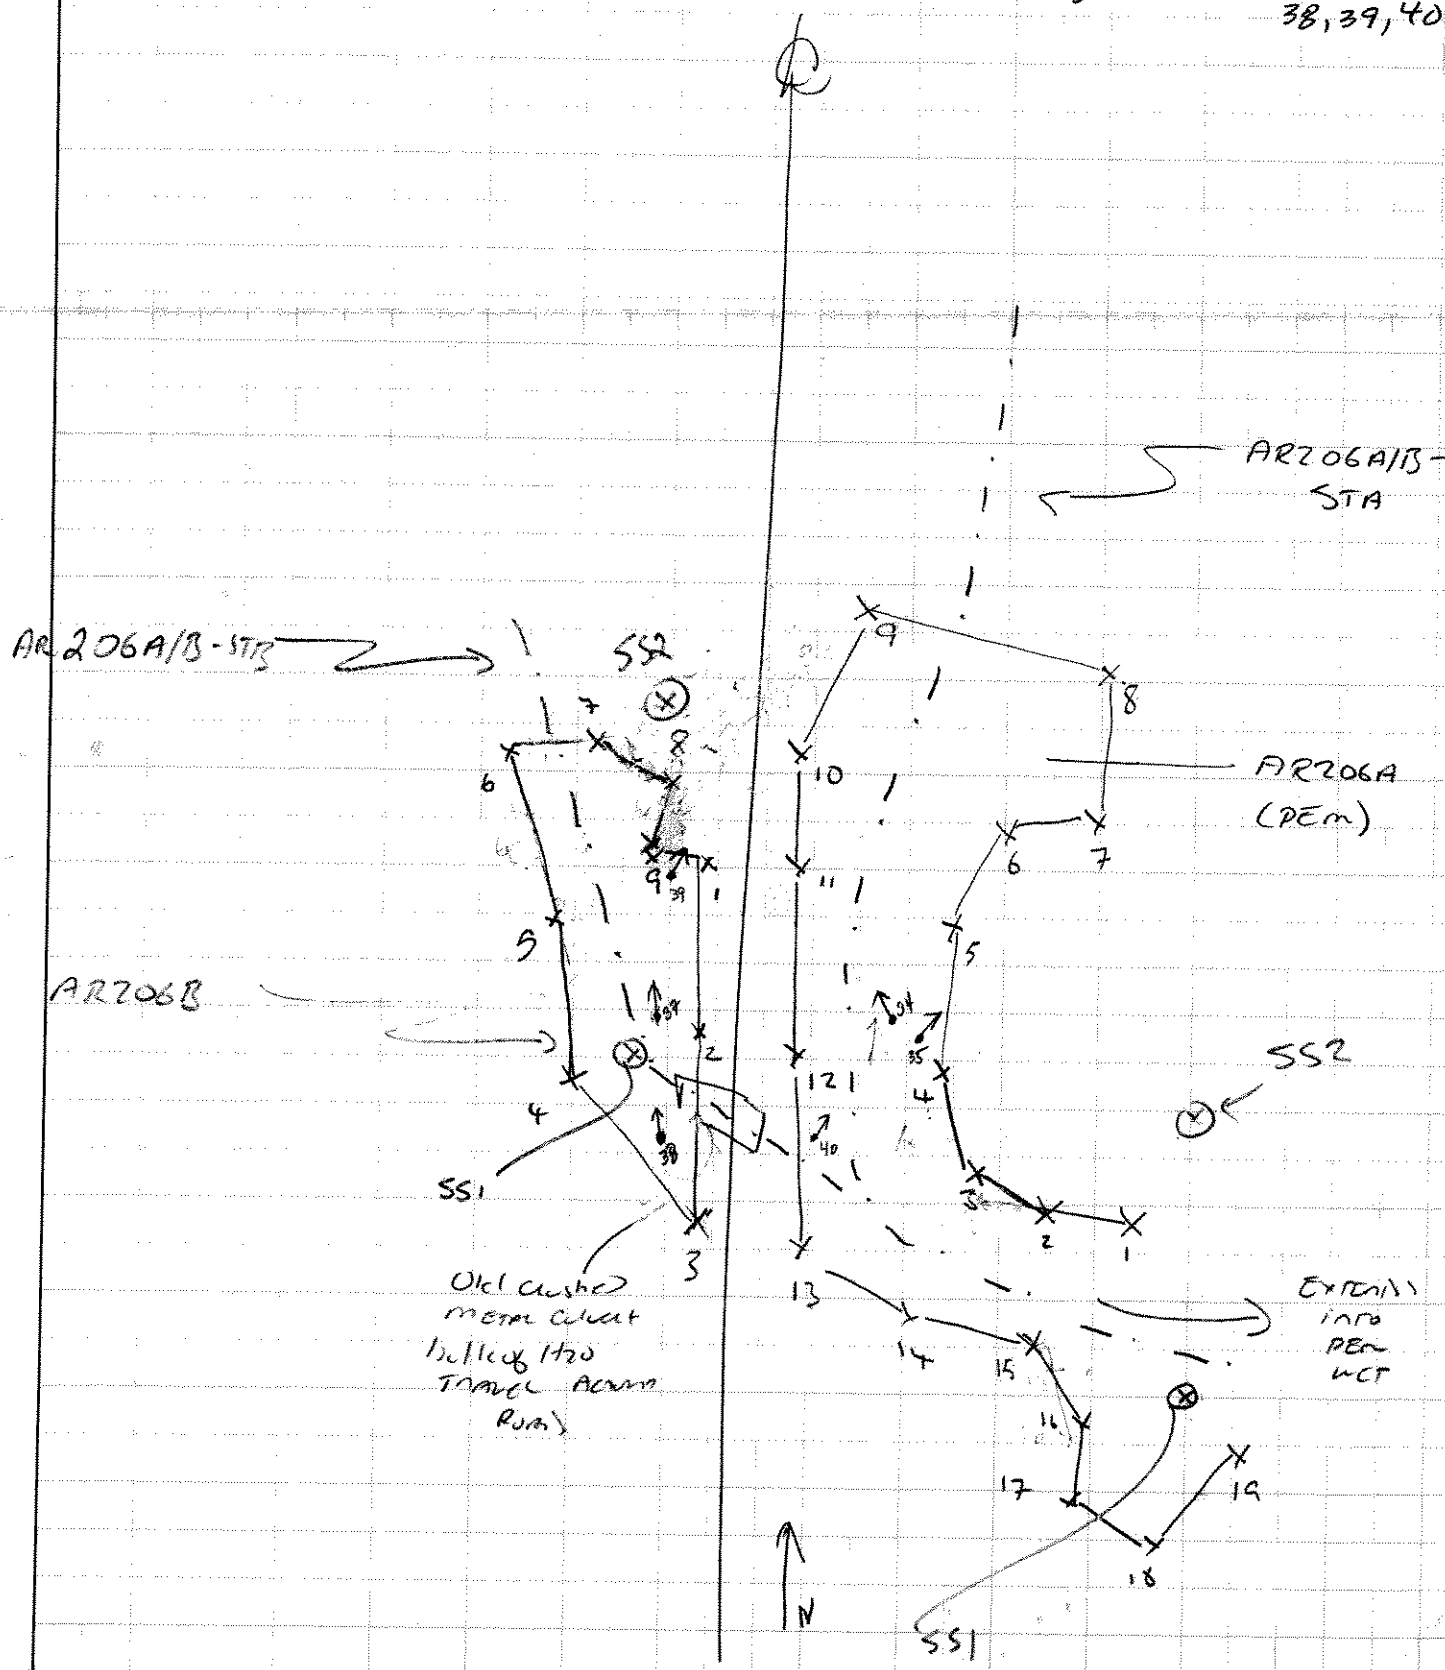 38,39,40
AR206A/B-
STA
AR206A/B-STB
SS2
9
8
7
8
6
10
AR206A
(PEM)
6
7
9
39
1
11
5
5
AR206B
37
34
35
2
12
4
4
SS2
38
40
SS1
3
2
1
3
13
Old crushed
metal culvert
bulk of H2O
travel across
Road
14
15
Extends
into
PEM
WET
16
17
19
18
N
SS1